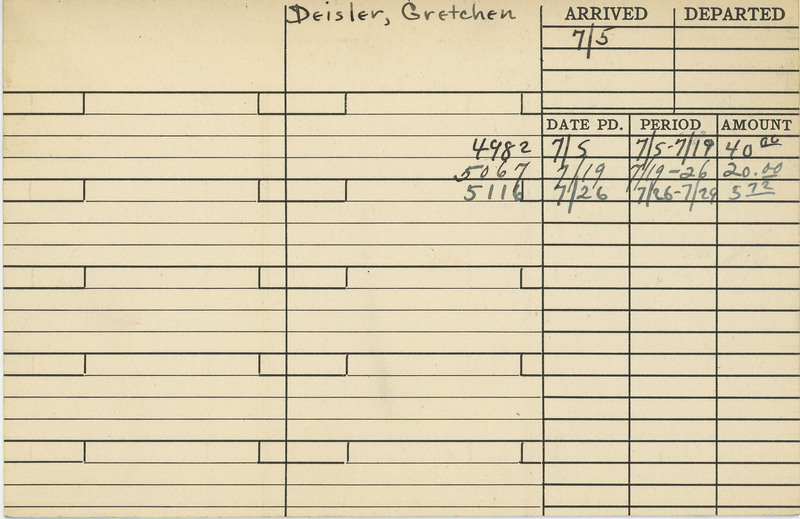 Deisler, Gretchen
ARRIVED DEPARTED
7/5
DATE PD. PERIOD AMOUNT
4982 7/5 7/5-7/19 40 00
5067 7/19 7/19-26 20.00
5116 7/26 7/26-7/29 5 72